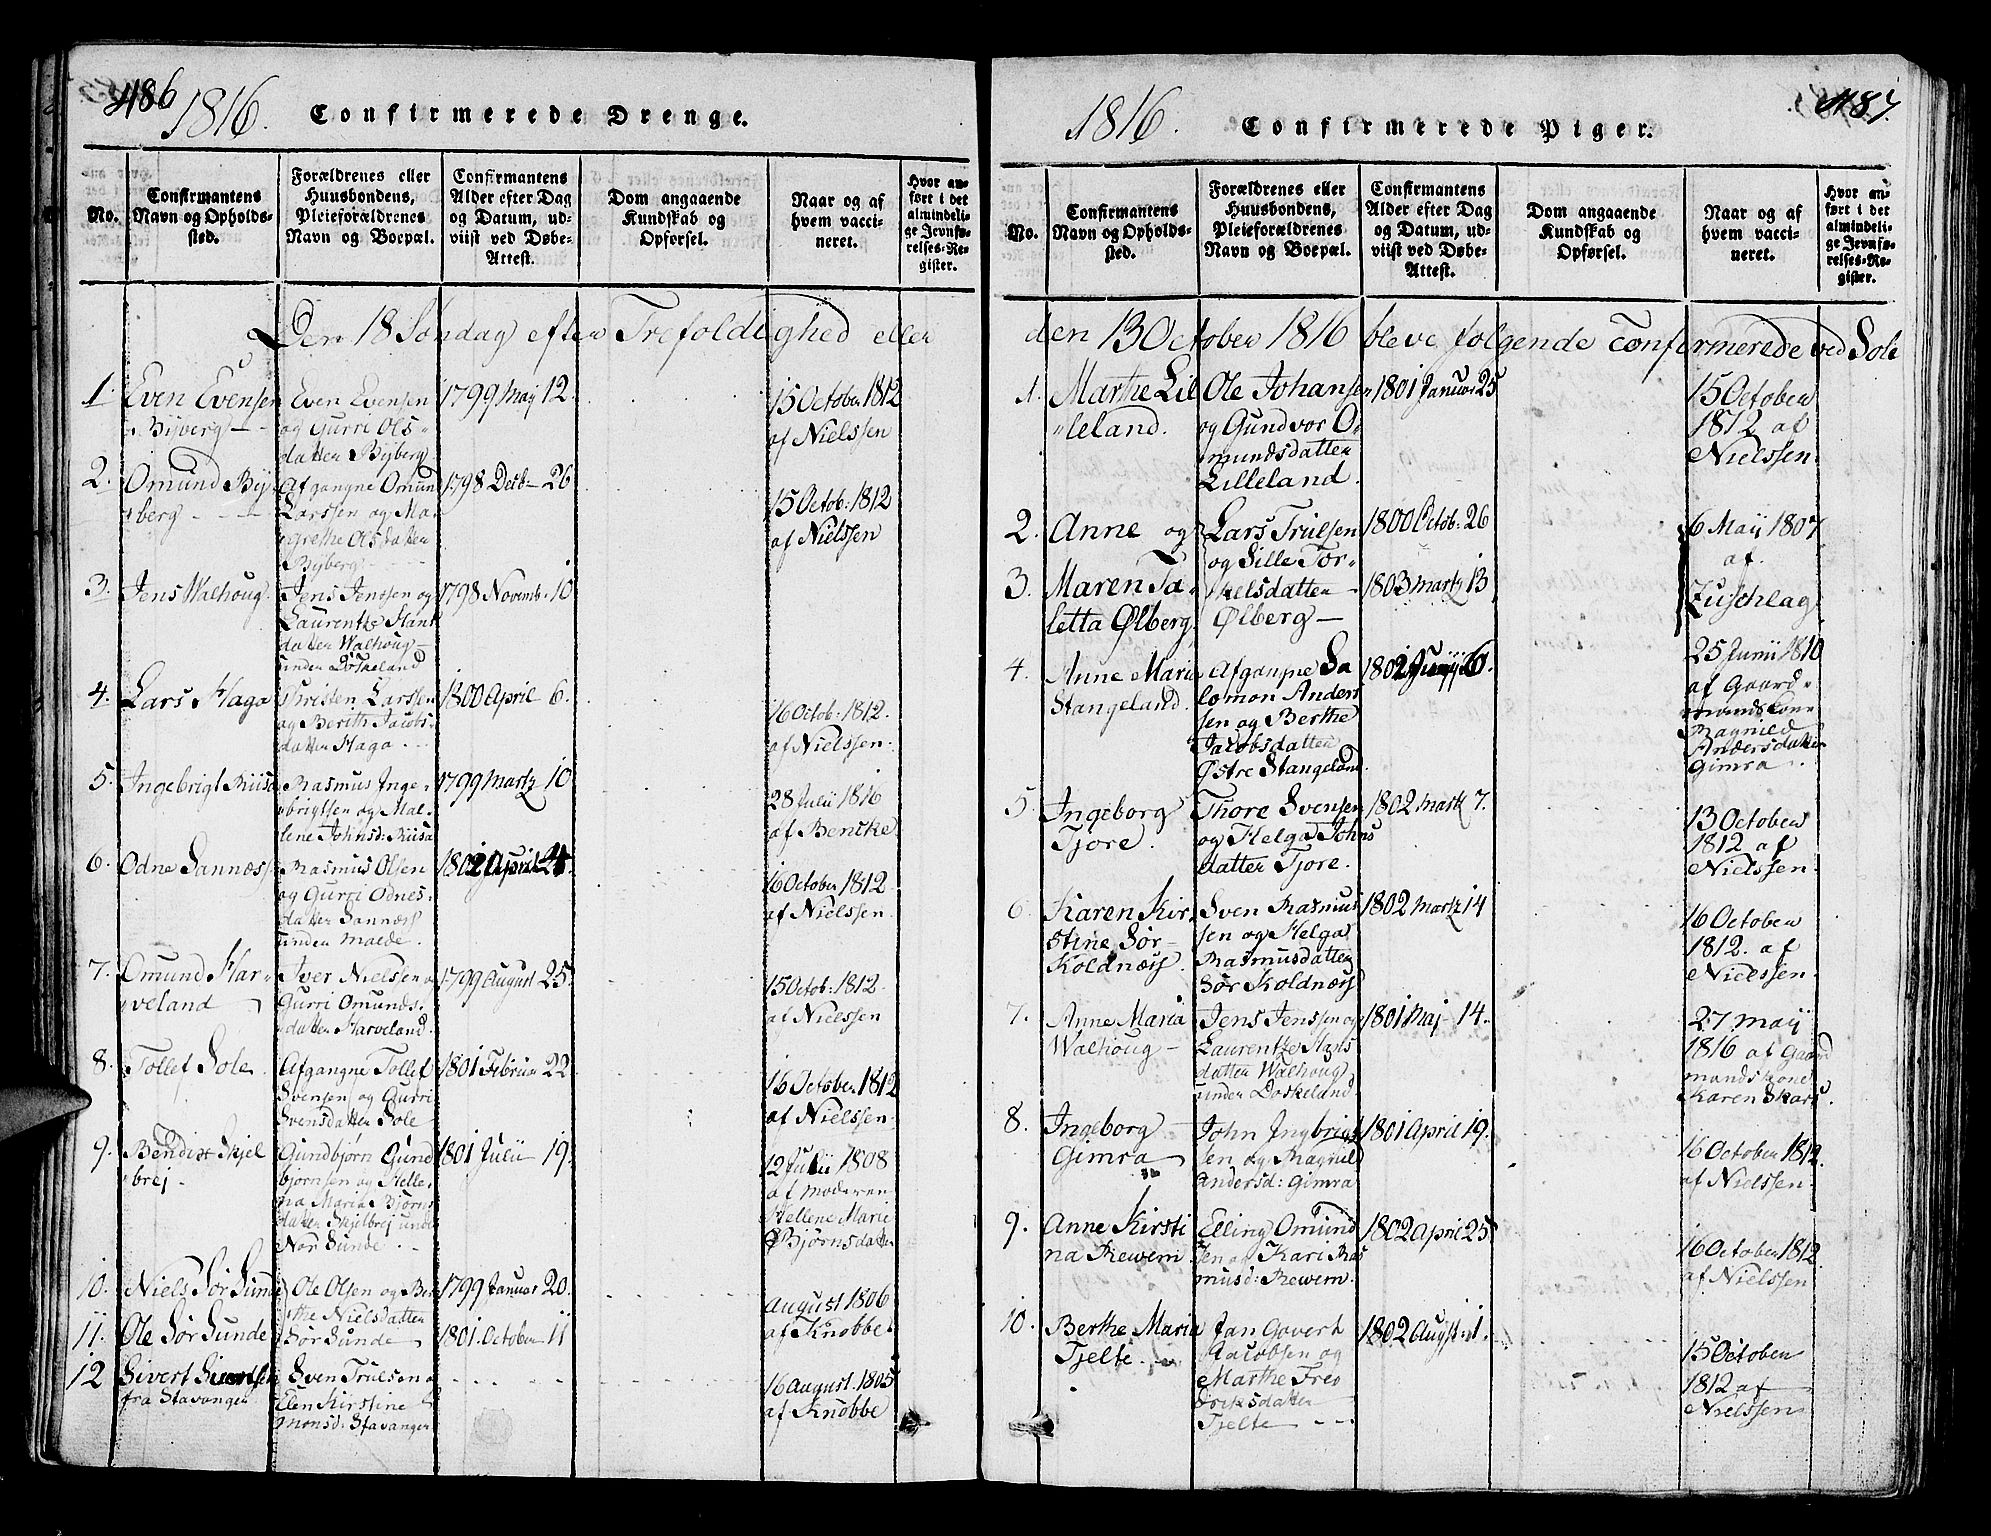 486
1816. Confirmerede Drenge.
No.
Confirmantens
Navn og Opholds-
sted.
Forældrenes eller
Huusbondens,
Pleieforældrenes
Navn og Boepæl.
Confirmantens
Alder efter Dag
og Datum, ud-
viist ved Døbe-
Attest.
Dom angaaende
Kundskab og
Opførsel.
Naar og af
hvem vacci-
neret.
Hvor an-
ført i det
almindeli-
ge Jevnfø-
relses-Re-
gister.
Den 18 Søndag efter Trefoldighed eller
1. Even Evensen
Byberg
Even Evensen
og Gurri Ols-
datter Byberg
1799 Maj 12.
15 October 1812
af Nielssen
2. Omund By-
berg
Afgangne Omund
Larssen og Ma-
grethe Olsdatter
Byberg
1798 Decb- 26
15 Octob: 1812
af Nielssen
3. Jens Walhoug.
Jens Jenssen og
Laurentze Hans
datter Walhoug
under Doskeland
1798 Novemb: 10
4. Lars Haga
Christen Larssen
og Berith Jacobs-
datter Haga
1800 April 6.
16 Octob: 1812.
af Nielssen.
5. Ingebrigt Riisa
Rasmus Inge-
brigtsen og Mal-
lene Johnsd: Riisa
1799 Martz 10
28 Julii 1816
af Bencke
6. Odne Sannæss
Rasmus Olsen
og Gurri Odnes-
datter Sannæss
under Malde.
1802 April 24.
16 October 1812
af Nielssen.
7. Omund Har-
veland
Iver Nielsen og
Gurri Omunds-
datter Harveland.
1799 August 25.
15 Octob: 1812.
af Nielssen
8. Tollef Sole
Afgangne Tollef
Svensen og Gurri
Svensdatter Sole
1801 Februar 22
16 October 1812
af Nielssen.
9. Bendix Skjel
brej
Gundbjørn Gund
bjørnsen og Helle-
na Maria Bjørns
datter Skjelbrej under
Nor Sunde
1801 Julii 19.
12 Julii 1808
af Moderen
Hellene Marie
Bjørnsdatter
10. Niels Sør Sunde
Ole Olsen og Ber
the Nielsdatter
Sør Sunde
1799 Januar 20.
August 1806
af Knobbe
11. Ole Sør Sunde
1801. October 11
12 Sivert Sivertsen
fra Stavanger
Sven Trulsen og
Elen Kirstine
Monsd: Stavanger
16 August. 1805
af Knobbe
487.
1816. Confirmerede Piger.
No.
Confirmantens
Navn og Opholds-
sted.
Forældrenes eller
Huusbondens,
Pleieforældrenes
Navn og Boepæl.
Confirmantens
Alder efter Dag
og Datum, ud-
viist ved Døbe-
Attest.
Dom angaaende
Kundskab og
Opførsel.
Naar og af
hvem vacci-
neret.
Hvor an-
ført i det
almindeli-
ge Jevnfø-
relses-Re-
gister.
den 13 October 1816 bleve følgende Confirmerede ved Sole
1. Marthe Lil
leland.
Ole Johansen
og Gundvor O-
mundsdatter
Lilleland.
1801 Januar 25
15 October
1812 af
Nielssen.
2. Anne og
Lars Trulsen
og Sille Tor-
kelsdatter
Ølberg
1800 Octob: 26
6 Maij 1807
af
Zuschlag
3. Maren Ta-
letta Ølberg
1803 Martz 13
4. Anne Maria
Stangeland.
Afgangne Sa
lomon Anders
sen og Berthe
Jacobsdatter
Østre Stangeland.
1802 Junij 6.
25 Junii 1810
af Gaard-
mands kone
Magnild
Andersdatter
Gimra
5. Ingeborg
Tjore.
Thore Svensen
og Helga Johns
datter Tjore.
1802 Martz 7.
13 October
1812 af
Nielssen.
6. Karen Kir-
stine Sør-
Koldnæss.
Sven Rasmus
sen og Helga
Rasmusdatter
Sør Koldnæss
1802 Martz 14
16 October
1812. af
Nielssen.
7. Anne Maria
Walhoug
Jens Jenssen og
Laurentze Hans
datter Walhoug
under Doskeland
1801 Maj 14.
27 Maij
1816 af Gaard
mandskone
Karen Skars.
8. Ingeborg
Gimra
John Ingbrigt
sen og Magnild
Andersd: Gimra
1801 April 19.
16 October 1812.
af Nielssen.
9. Anne Kirsti
na Rewem
Elling Omund
sen og Kari Ras
musd: Rewem.
1802 April 25
16 October 1812.
af Nielssen
10. Berthe Maria
Tjelte.
Jan Govert
Jacobsen og
Marthe Fred
dricksdatter
Tjelte
1802 Augst 1.
15 October
1812 af
Nielssen